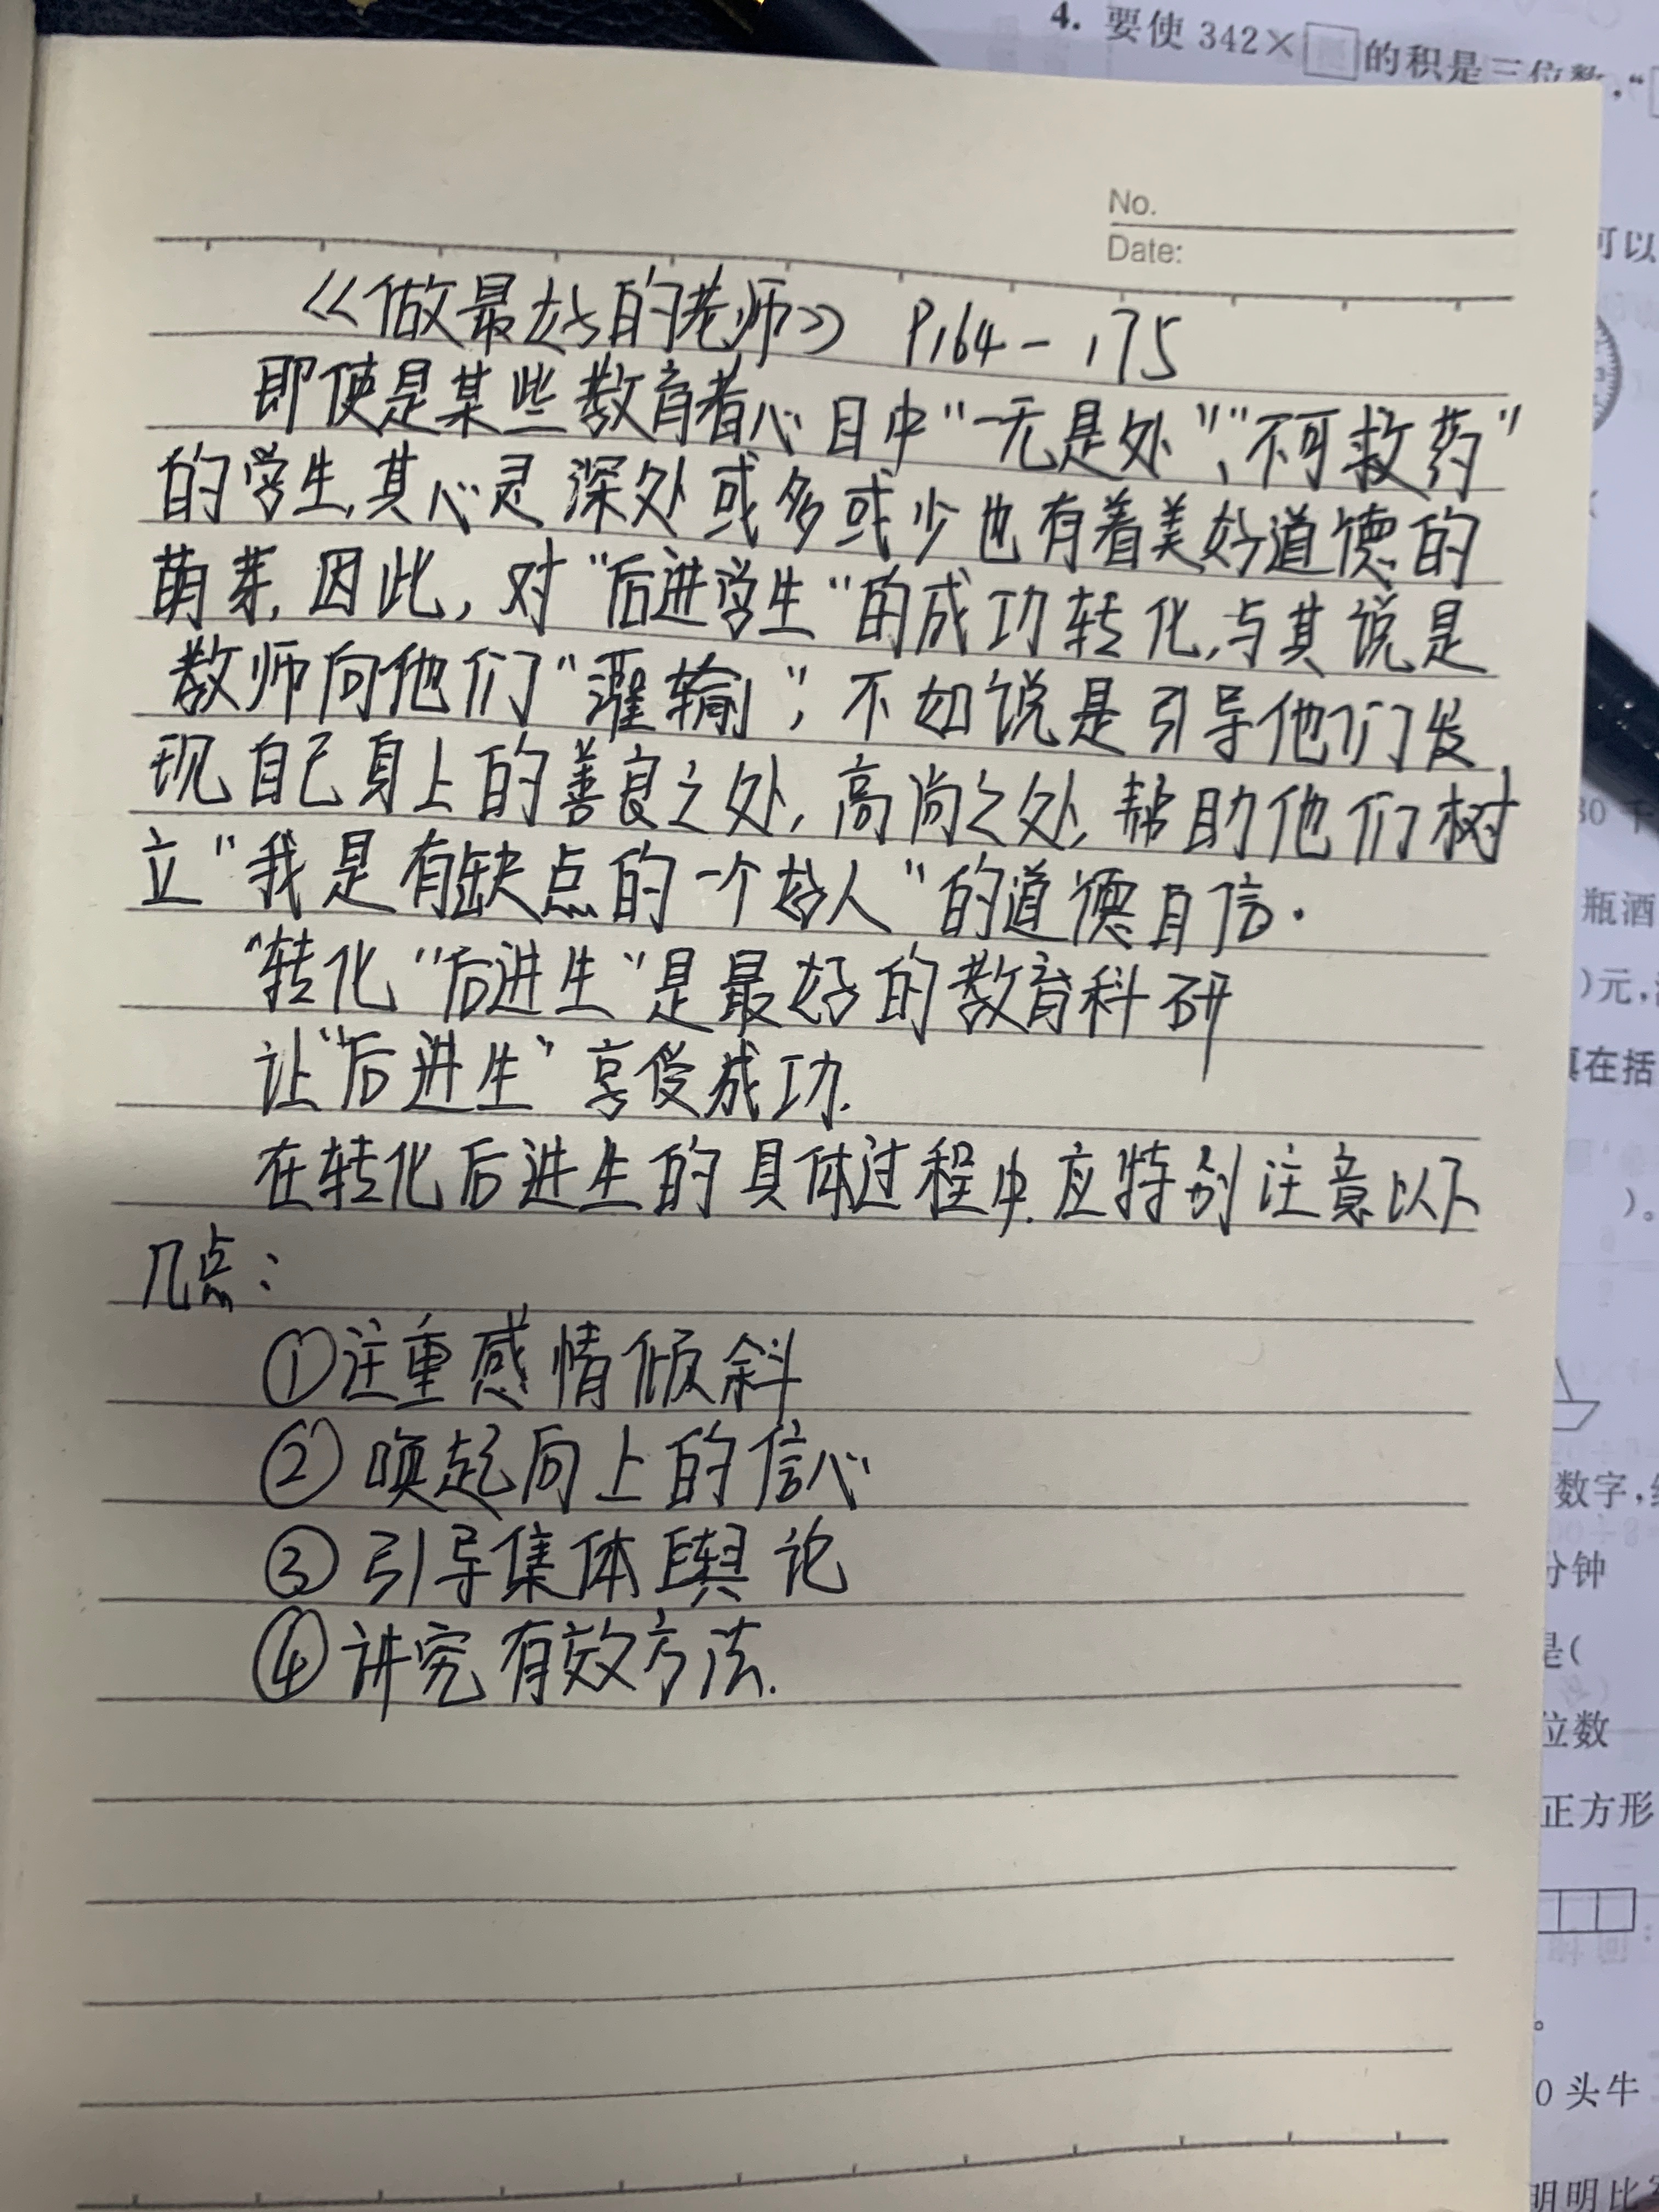 4. 要使 342×□的积是三位数，“
No.
Date:
《做最好的老师》 P164-175
即使是某些教育者心目中“一无是处”、“不可救药”
的学生,其心灵深处或多或少也有着美好道德的
萌芽,因此,对“后进学生”的成功转化,与其说是
教师向他们“灌输”,不如说是引导他们发
现自己身上的善良之处,高尚之处,帮助他们树
立“我是有缺点的一个好人”的道德自信.
“转化“后进生”是最好的教育科研
让“后进生”享受成功.
在转化后进生的具体过程中.应特别注意以下
几点:
①注重感情倾斜
②唤起向上的信心
③引导集体舆论
④讲究有效方法.
可以
瓶酒
)元,
在括
)。
数字,
分钟
是(
位数
正方形
。
0头牛
明明比